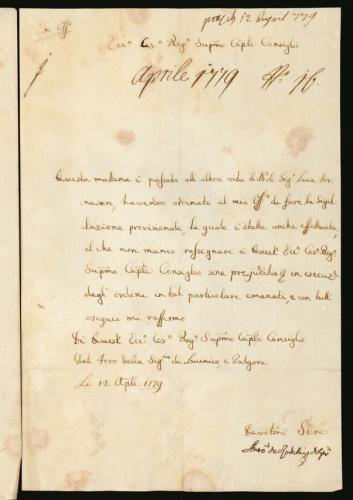 Ex Off°
12 April 1779
Ecc° Ces° Reg° Supmo Captle Consiglio
Aprile 1779 N° 16.
Questa matina è passato alla altra vita il Nob. Sig. Luca
havendo ordinato al mio Off° di fare la Sigil-
lazione provisionale, la quale è stata anche effettuata,
il che non manco rassegnare a Quest' Ecc° Ces° Reg°
Supmo Captle Consiglio sine prejuditio in esecuz
degl' ordini in tal particolare emanati, e con tutt
osseguio me raffermo
Di Quest' Ecc° Ces° Reg° Supmo Captle Consiglio
Dal Foro della Sig de Lucinico, e Podgora
Li 12 Aple 1779
Devotmo Serv